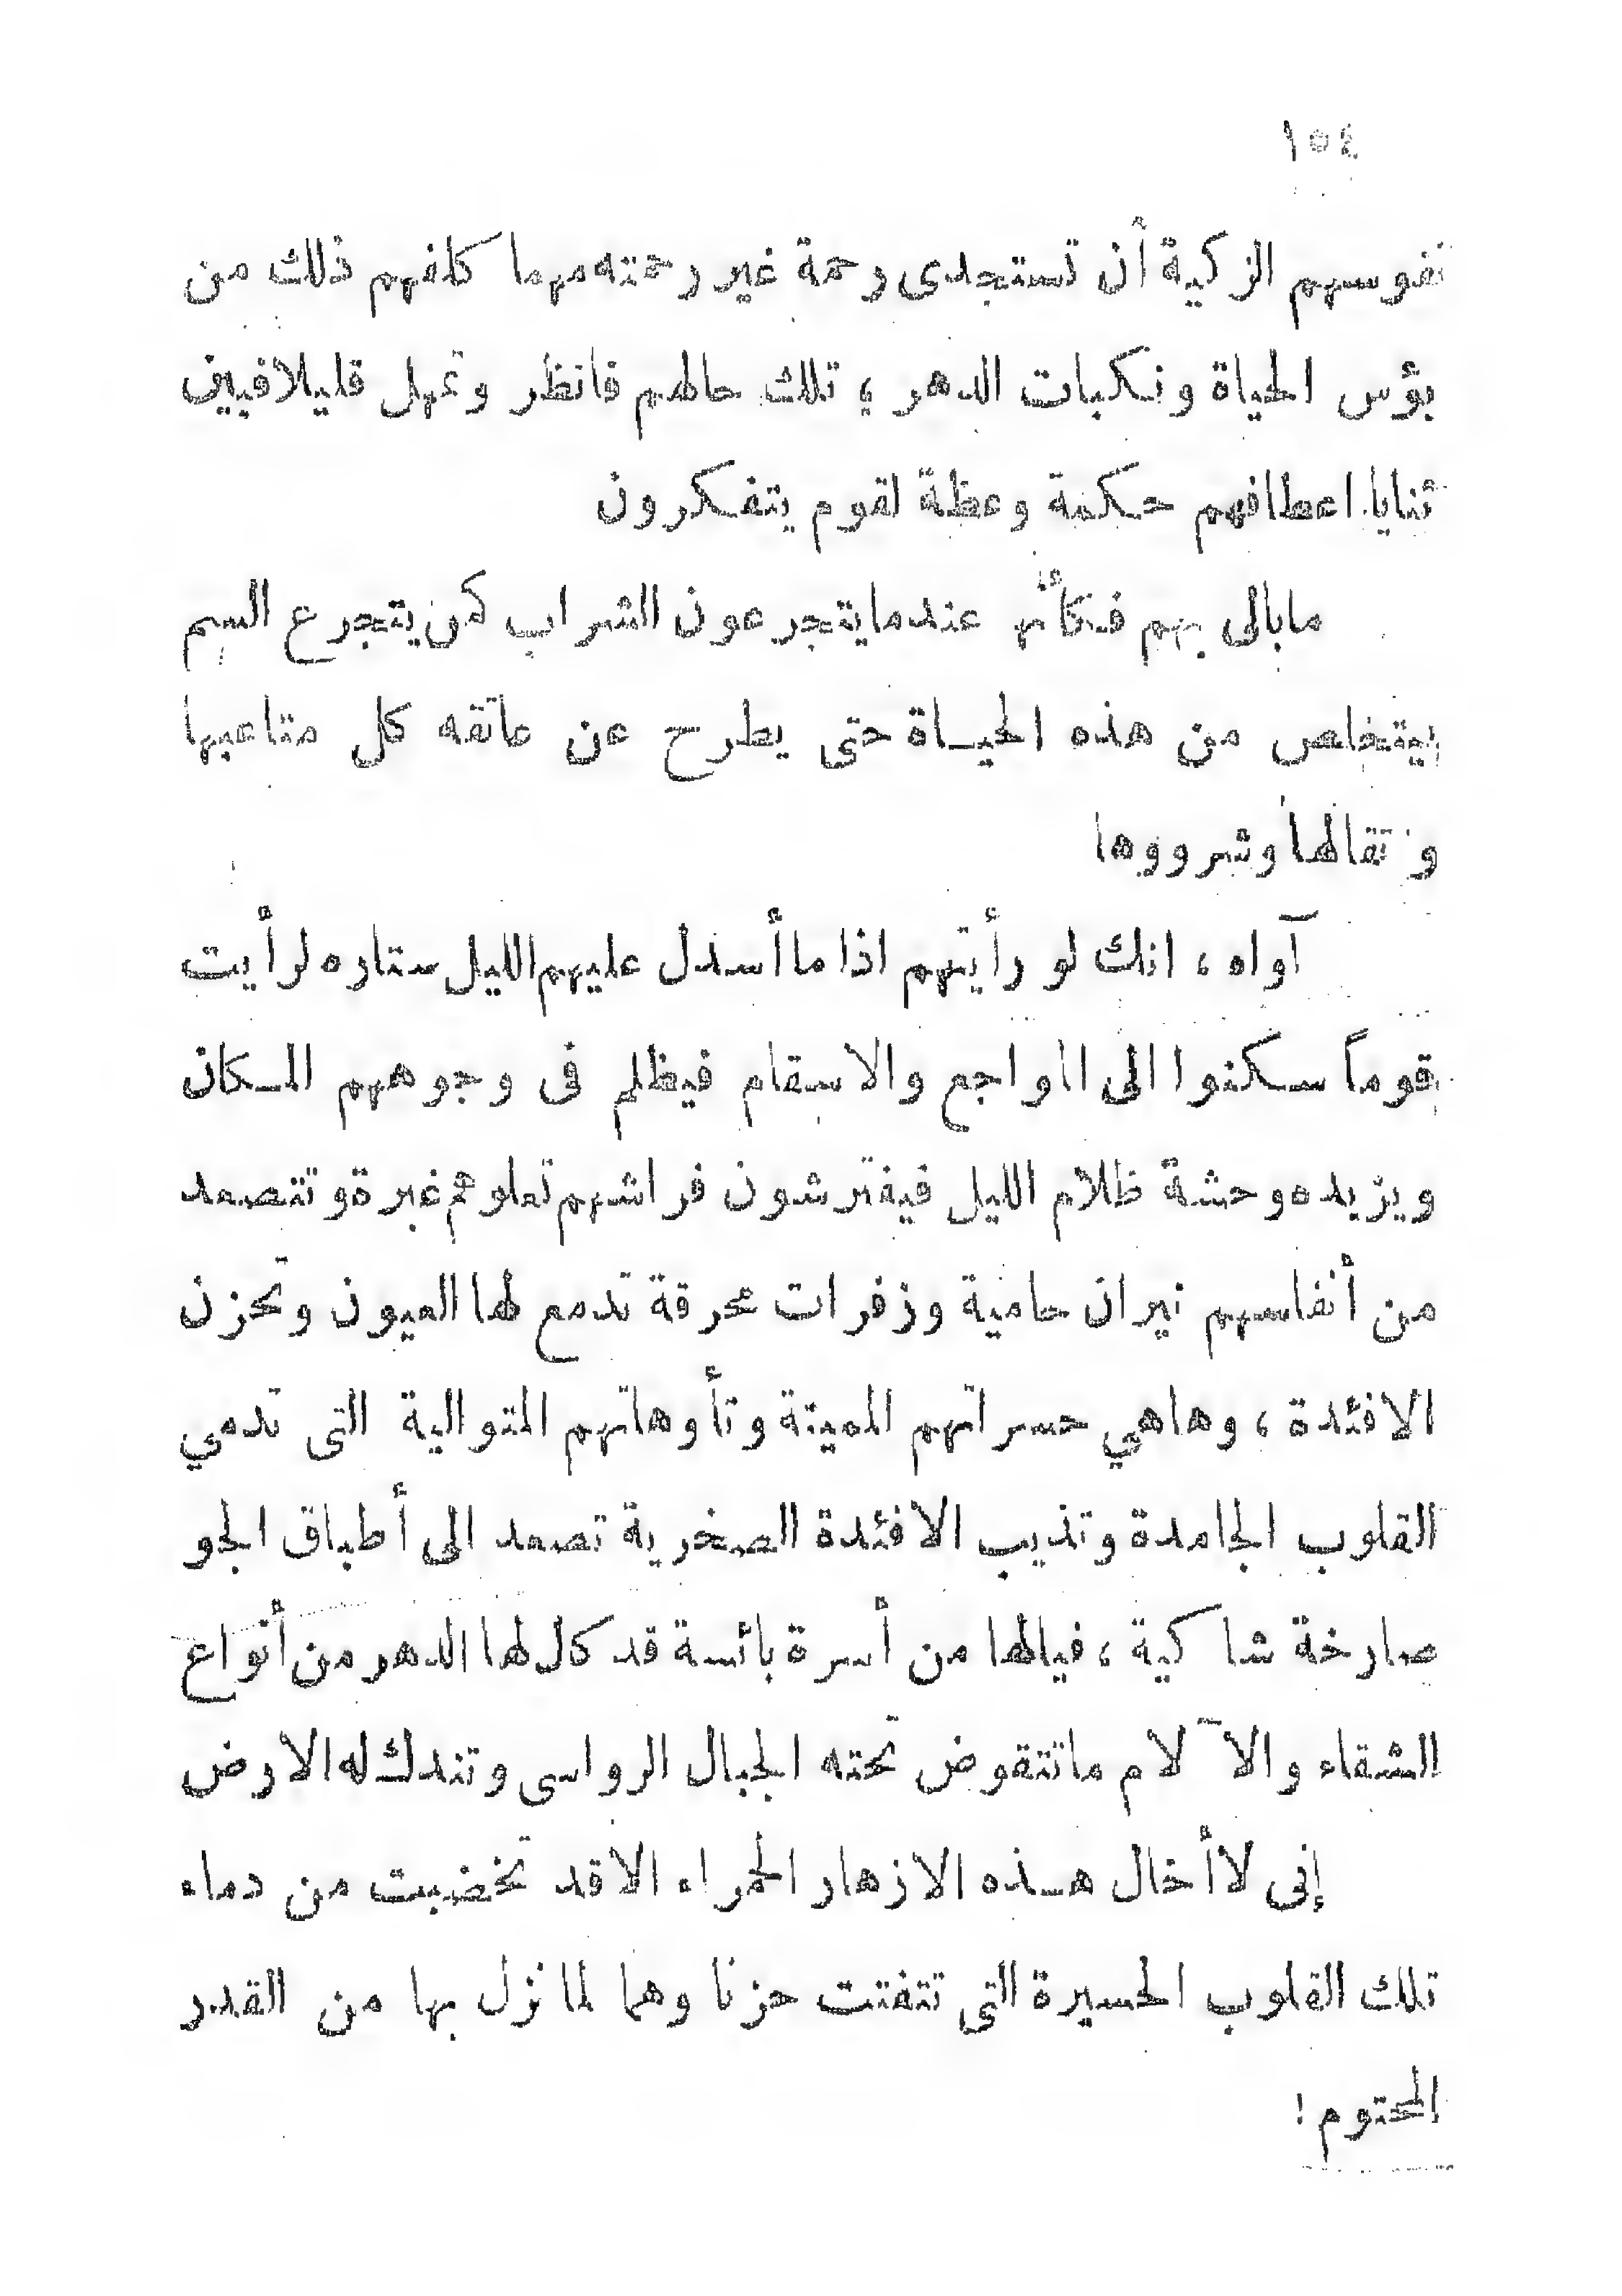 ١٥٤
نفوسهم الزكية أن تستجدى رحمة غير رحمته مهما كلفهم ذلك من
بؤس الحياة ونكبات الدهر ؛ تلك حالهم فانظر وتمهل قليلا فبين
ثنايا اعطافهم حكمة وعظة لقوم يتفكرون
مابالى بهم فكأنما عندما يتجرعون الشراب كمن يتجرع السم
ليتخلص من هذه الحياة حتى يطرح عن عاتقه كل متاعبها
واثقالها وشرورها
آواه ، انك لو رأيتهم اذا ما أسدل عليهم الليل ستاره لرأيت
قوماً سكنوا الى المواجع والاسقام فيظلم فى وجوههم المكان
ويزيده وحشة ظلام الليل فيفترشون فراشهم تعلوهم غبرة وتتصعد
من أنفاسهم نيران حامية وزفرات محرقة تدمع لها العيون وتحزن
الافئدة ، وهاهي حسراتهم المميتة وتأوهاتهم المتوالية التى تدمي
القلوب الجامدة وتذيب الافئدة الصخرية تصعد الى أطباق الجو
صارخة شاكية ، فيالها من أسرة بائسة قد كال لها الدهر من أنواع
الشقاء والآلام ماتتقوض تحته الجبال الرواسى وتندك له الارض
إنى لا أخال هذه الازهار الحمراء الا قد تخضبت من دماء
تلك القلوب الحسيرة التى تتفتت حزنا وهما لما نزل بها من القدر
المحتوم !